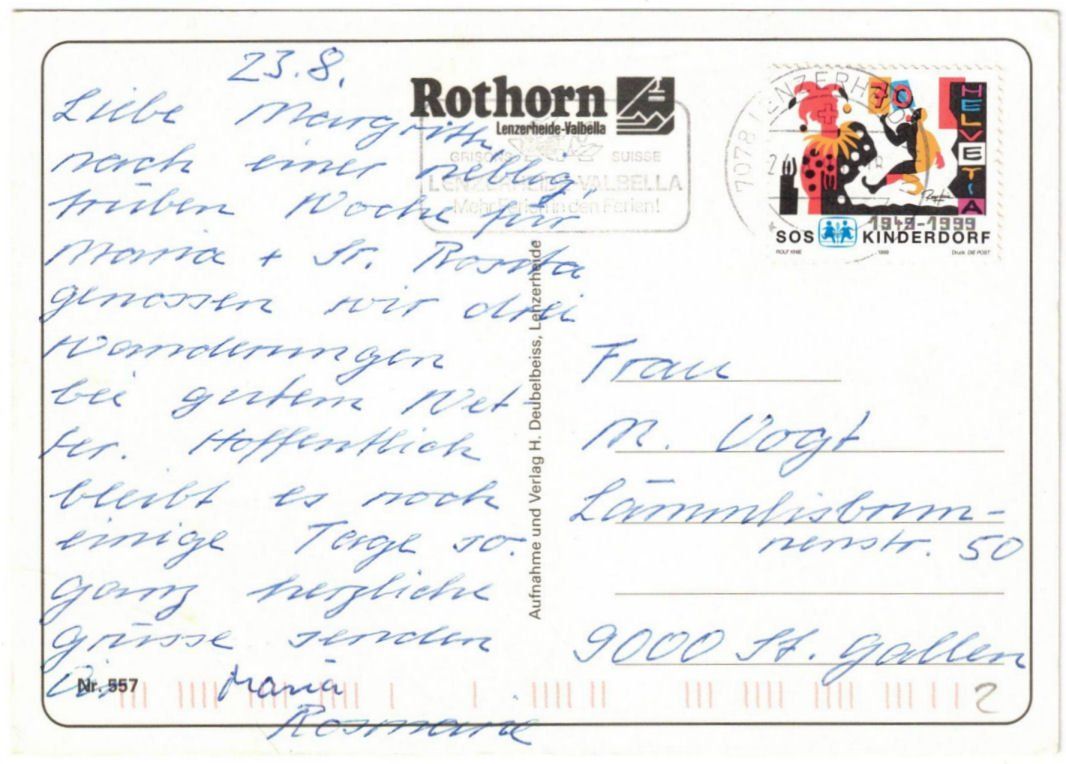 23.8.
Liebe Margrith,
nach einer neblig,
trüben Woche für
Maria + Sr. Rosita
genossen wir drei
Wanderungen
bei gutem Wet-
ter. Hoffentlich
bleibt es noch
einige Tage so.
Ganz herzliche
Grüsse senden
Dir Maria
Rosmarie
Nr. 557
Rothorn
Lenzerheide-Valbella
GRISONS SUISSE
LENZERHEIDE-VALBELLA
Mehr Ferien in den Ferien!
Aufnahme und Verlag H. Deubelbeiss, Lenzerheide
7078 LENZERH
70
HELVETIA
1949-1999
SOS KINDERDORF
ROLF KNIE 1999 Druck: DIE POST
Frau
M. Vogt
Lämmlisbrun-
nenstr. 50
9000 St. Gallen
2